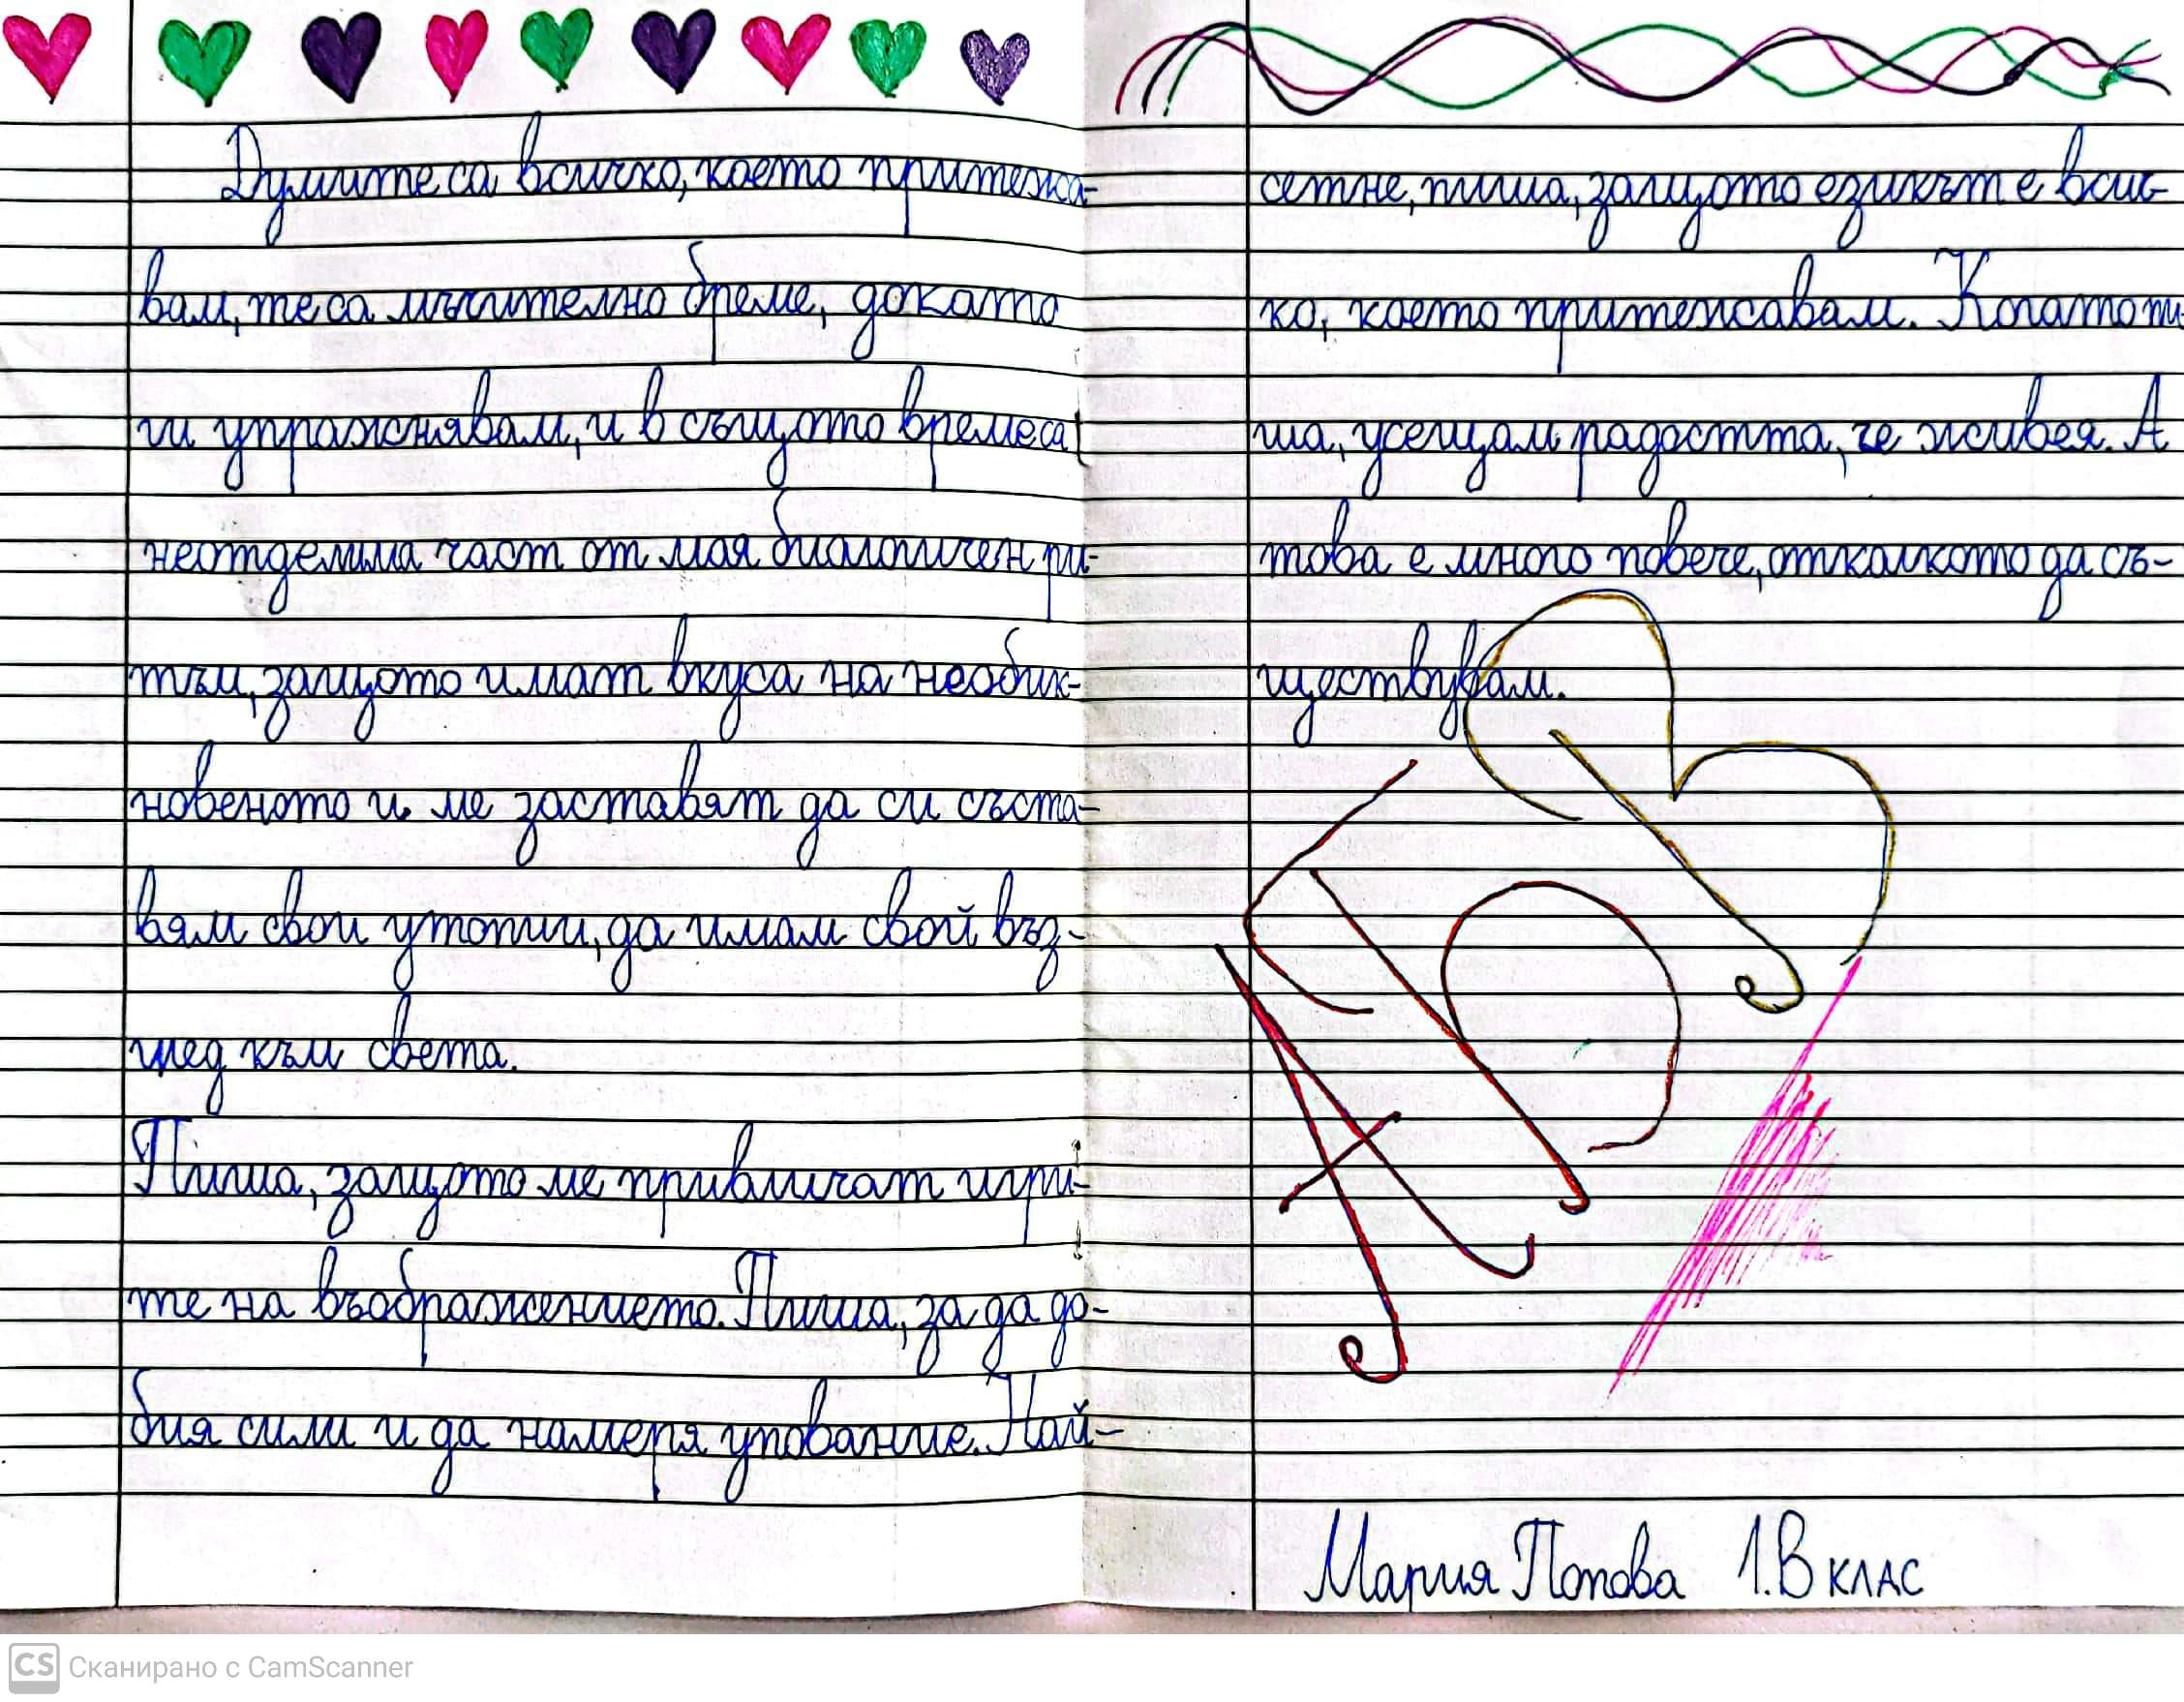 Думите са всичко, което притежа-
вам, те са мъчително бреме, докато
ги упражнявам, и в същото време са
неотделима част от моя биологичен ри-
тъм, защото имат вкуса на необик-
новеното и ме заставят да си съста-
вям свои утопии, да имам свой въз-
глед към света.
Пиша, защото ме привличат игри-
те на въображението. Пиша, за да до-
бия сили и да намеря упование. Най-
сетне, пиша, защото езикът е всич-
ко, което притежавам. Когато пи-
ша, усещам радостта, че живея. А
това е много повече, отколкото да съ-
ществувам.
АБВ
Мария Попова 1.В клас
CS Сканирано с CamScanner